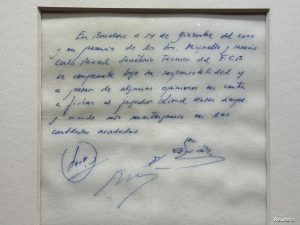 En Barcelona a 14 de diciembre del 2000
y en presencia de los Srs. Minguella y Horacio
Carlos Rexach Secretario Técnico del F.C.B
se compromete bajo su responsabilidad y
a pesar de algunas opiniones en contra
a fichar al jugador Lionel Messi
y cuando nos mantengamos en las
cantidades acordadas